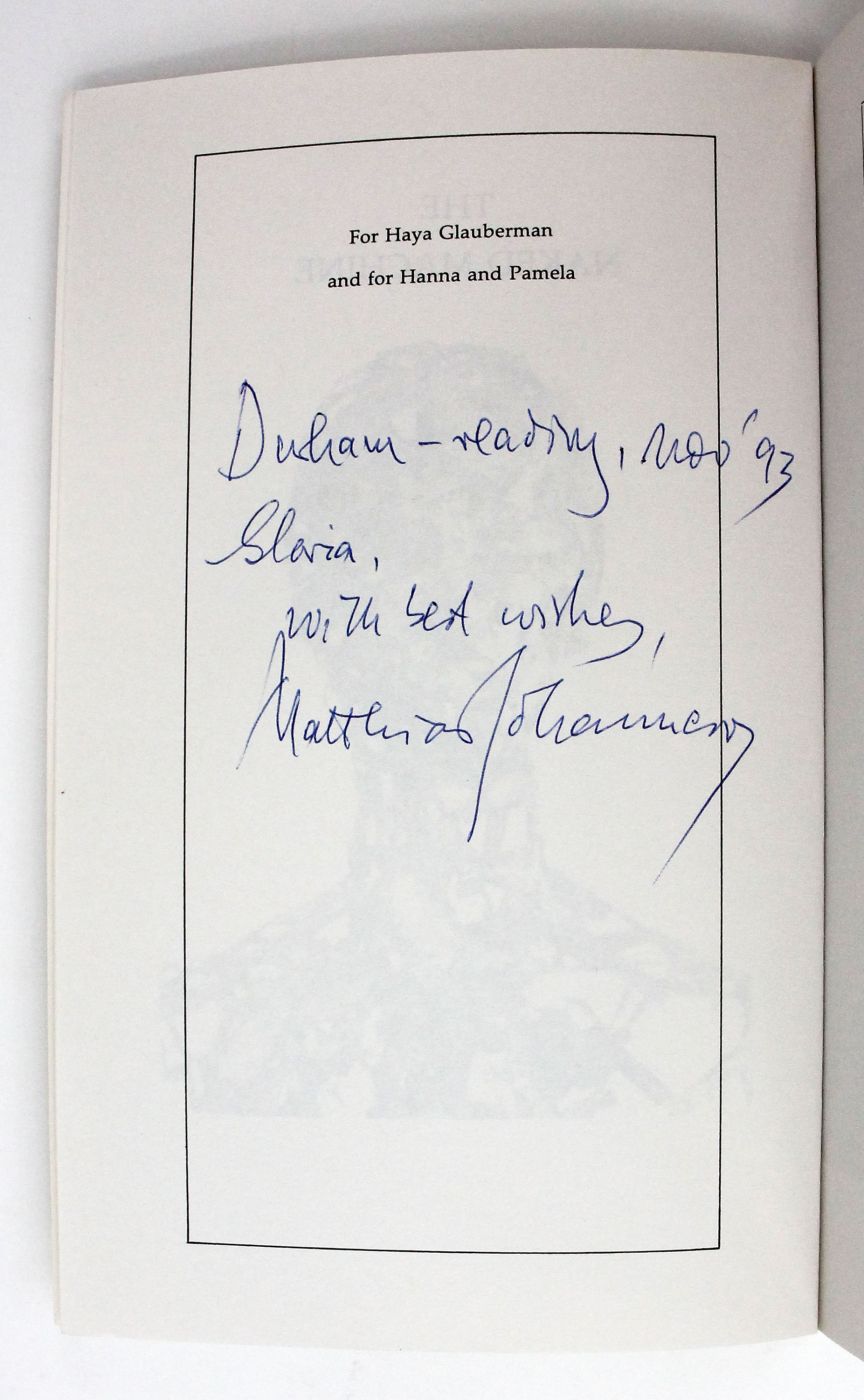 For Haya Glauberman
and for Hanna and Pamela
Durham – reading, nov '93
Gloria,
with best wishes,
Matthias Johannessen
THE
NAKED MACHINE